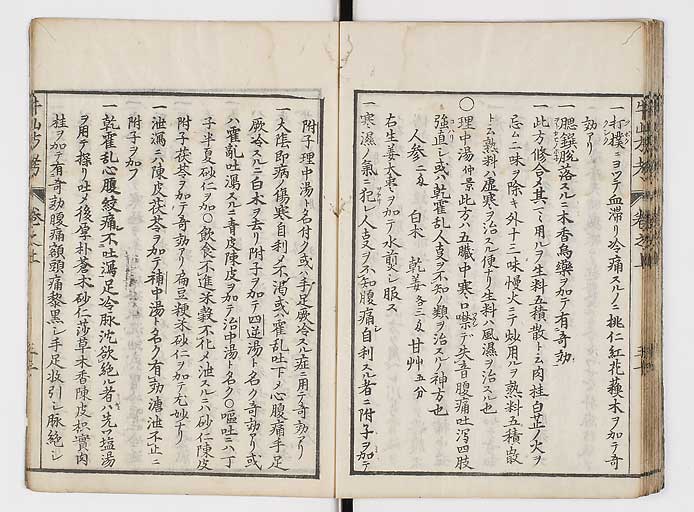 一打撲ニヨツテ血滞リ冷痛スルノニ桃仁紅花蘓木ヲ加テ奇
効アリ
一腮鎖脱落スルニ木香烏藥ヲ加テ有奇効
一此方修合メ其マヽ用ルヲ生料五積散トモ云肉桂白芷ノ火ヲ
忌ム二味ヲ除キ外十三味慢火ニテ炒用ルヲ熟料五積散
ト云熟料ハ虚寒ヲ治スル便ナリ生料ハ風濕ヲ治スル也
〇理中湯 仲景 此方ハ五臓中寒口噤テ失音腹痛吐瀉四肢
強直シ或ハ乾霍乱人支ヲ不知ノ類ヲ治スルノ神方也
人參 二匁 白朮 乾姜 各三匁 甘艸 五分
右生姜大棗ヲ加テ水煎シ服ス
一寒濕ノ氣ニ犯レ人支ヲ不知腹痛自利スル者ニ附子ヲ加テ
附子理中湯ト名付ク或ハ手足厥冷スル症ニ用テ奇効アリ
一大陰即病ノ傷寒自利メ不渇或ハ霍乱吐下メ心腹痛手足
厥冷スルニ白朮ヲ去リ附子ヲ加テ四逆湯ト名ク奇効アリ或
ハ霍亂吐瀉スルニ青皮陳皮ヲ加テ治中湯ト名ク〇嘔吐ニハ丁
子半夏砂仁ヲ加〇飲食不進米穀不化メ泄スルニハ砂仁陳皮
附子茯苓ヲ加テ奇効アリ扁豆粳米砂仁ヲ加テ尤妙ナリ
一泄瀉ニハ陳皮茯苓ヲ加テ補中湯ト名ク有効溏泄不止ニ
附子ヲ加フ
一乾霍乱心腹絞痛不吐瀉足冷脉沈欲絶ル者ハ先ツ塩湯
ヲ用テ探リ吐メ後厚朴蒼朮砂仁莎草木香陳皮枳實肉
桂ヲ加テ有奇効腹痛額頭痛黎黒シ手足收引シ脉絶シ